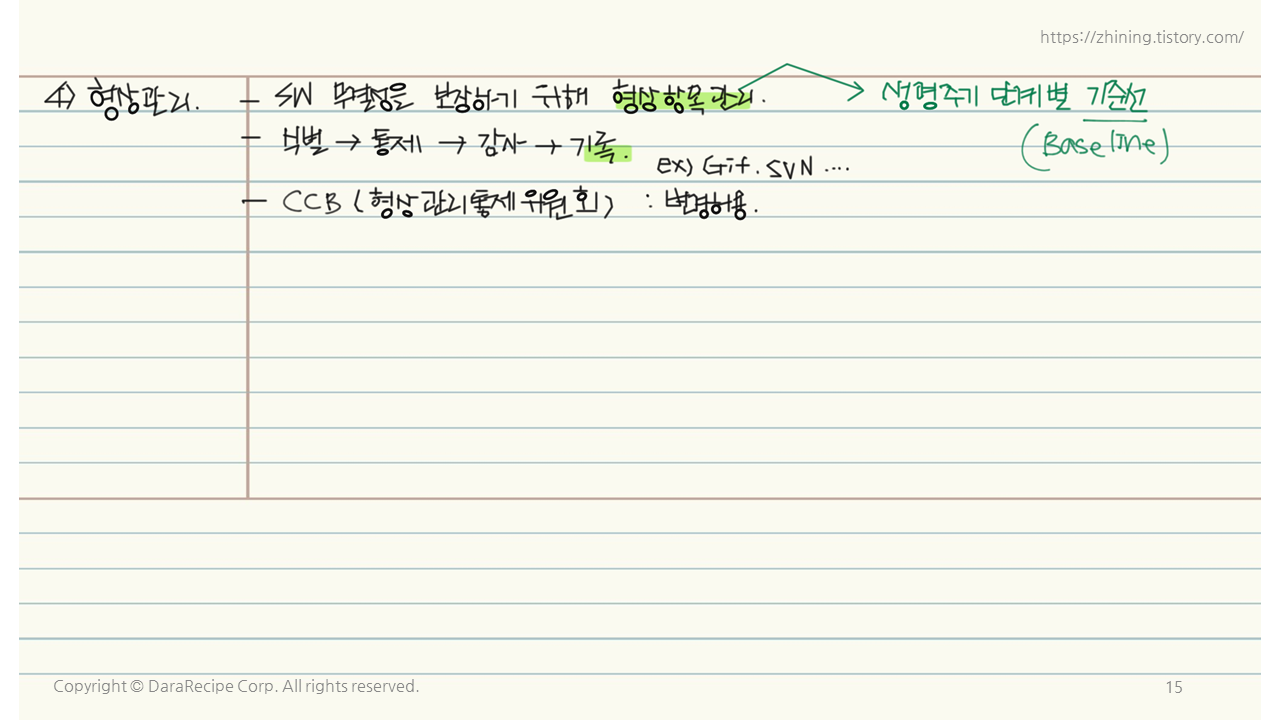 https://zhining.tistory.com/
4) 형상관리. - SW 무결성을 보장하기 위해 형상항목관리. 생명주기 단계별 기준선
(Baseline)
- 식별 → 통제 → 감사 → 기록.
ex) Git. SVN ....
- CCB (형상관리통제위원회) : 변경허용.
Copyright © DaraRecipe Corp. All rights reserved.
15